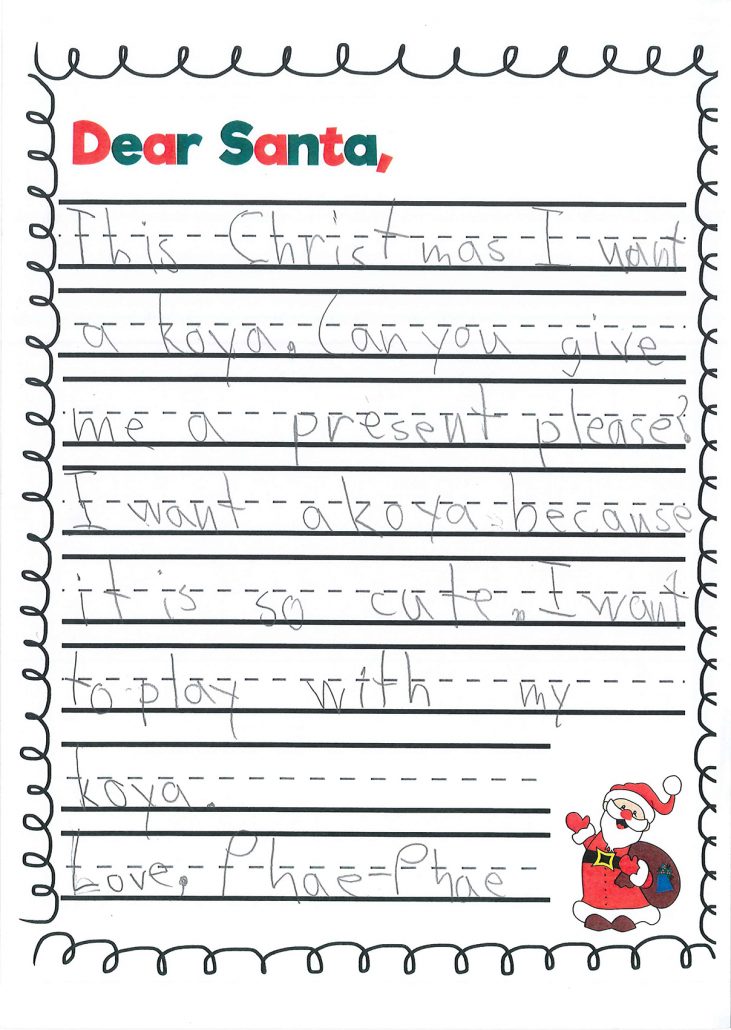 Dear Santa,
This Christmas I want
a koya. Can you give
me a present please?
I want a koya because
it is so cute. I want
to play with my
koya.
Love, Phae-Phae